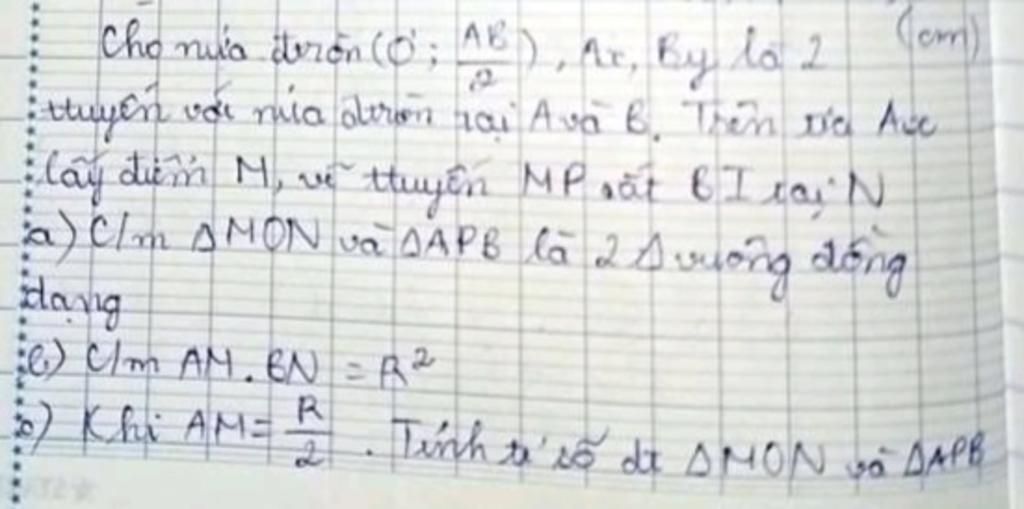 Cho nửa đtròn (O; AB/2), Ax, By là 2 (cm)
ttuyến với nửa đtròn tại A và B. Trên tia Ax
lấy điểm M, vẽ ttuyến MP cắt BI tại N
a) C/m ΔMON và ΔAPB là 2 Δ vuông đồng
dạng
b) C/m AM. BN = R²
c) Khi AM = R/2. Tính tỉ số dt ΔMON và ΔAPB